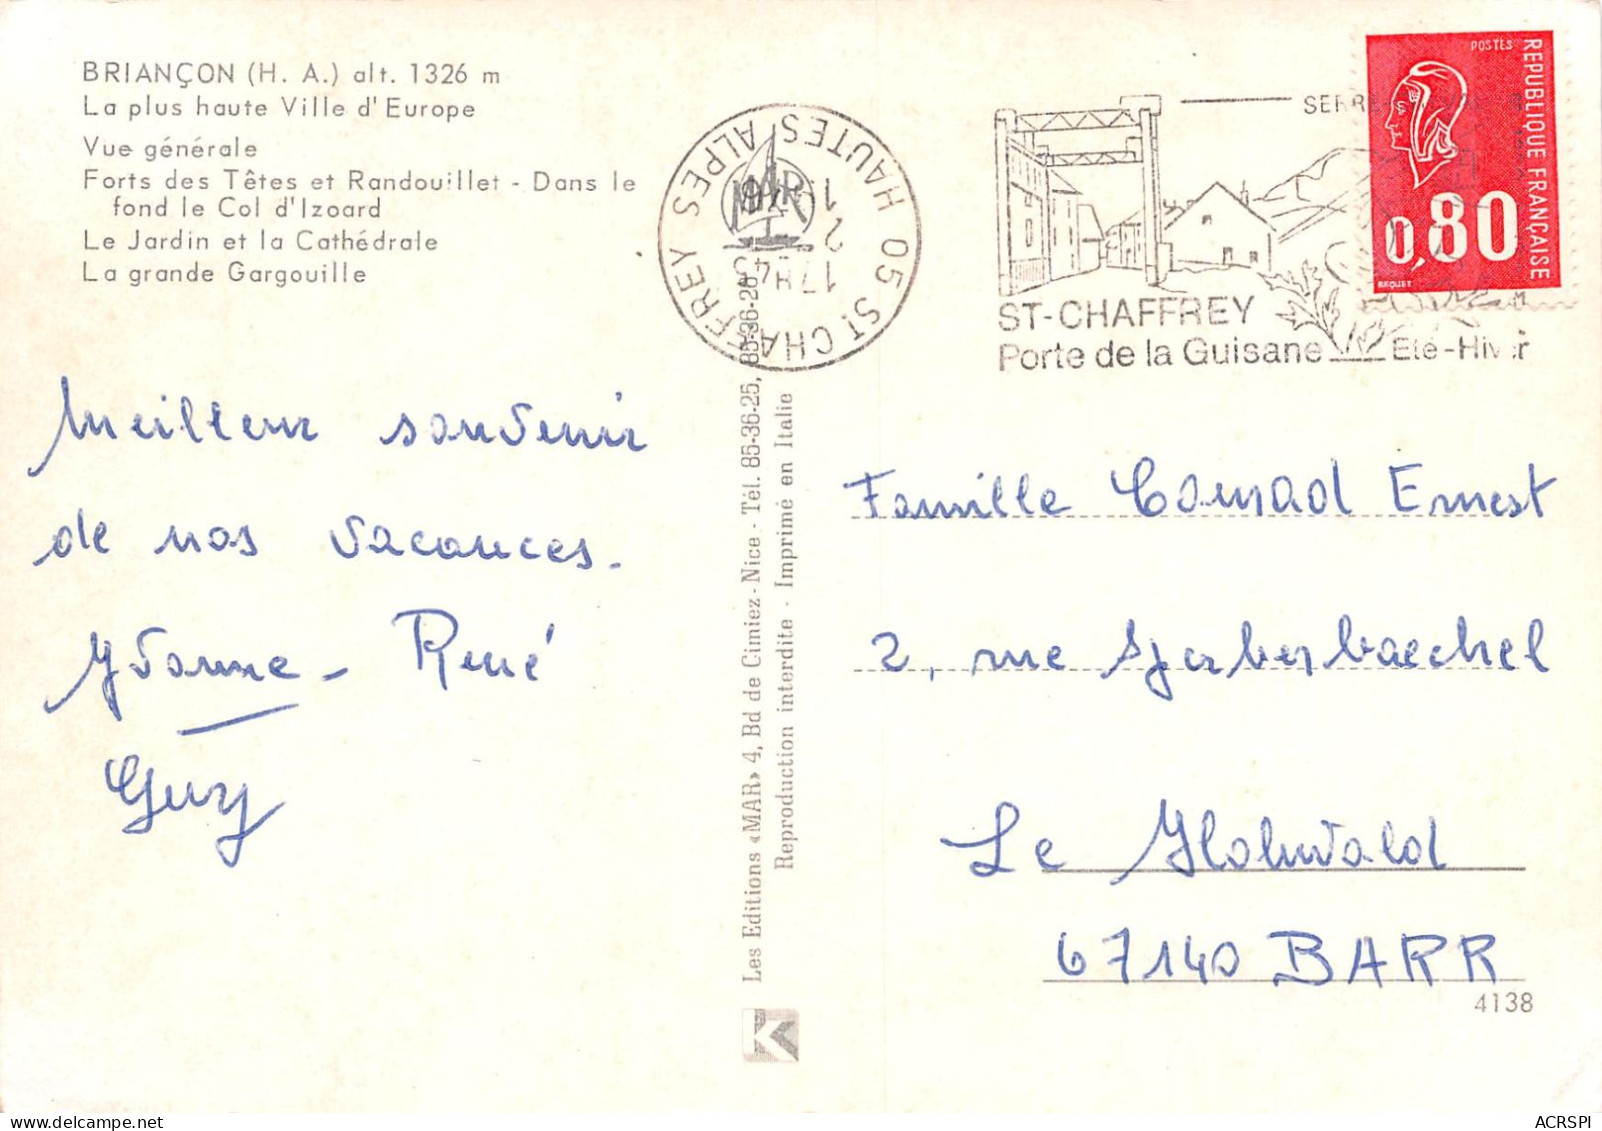 BRIANÇON (H. A.) alt. 1326 m
La plus haute Ville d'Europe
Vue générale
Forts des Têtes et Randouillet - Dans le
fond le Col d'Izoard
Le Jardin et la Cathédrale
La grande Gargouille
Meilleur souvenir
de nos vacances.
Yvonne - René
Guy
MAR
05 ST CHAFFREY HAUTES ALPES
17H45
1 2
Les Editions «MAR» 4, Bd de Cimiez - Nice - Tél. 85-36-25, 85-36-28
Reproduction interdite - Imprimé en Italie
K
ST-CHAFFREY
Porte de la Guisane Eté-Hiver
POSTES
REPUBLIQUE FRANÇAISE
0,80
BEQUET
Famille Conrad Ernest
2, rue
Le Hohwald
67140 BARR
4138
ACRSPI